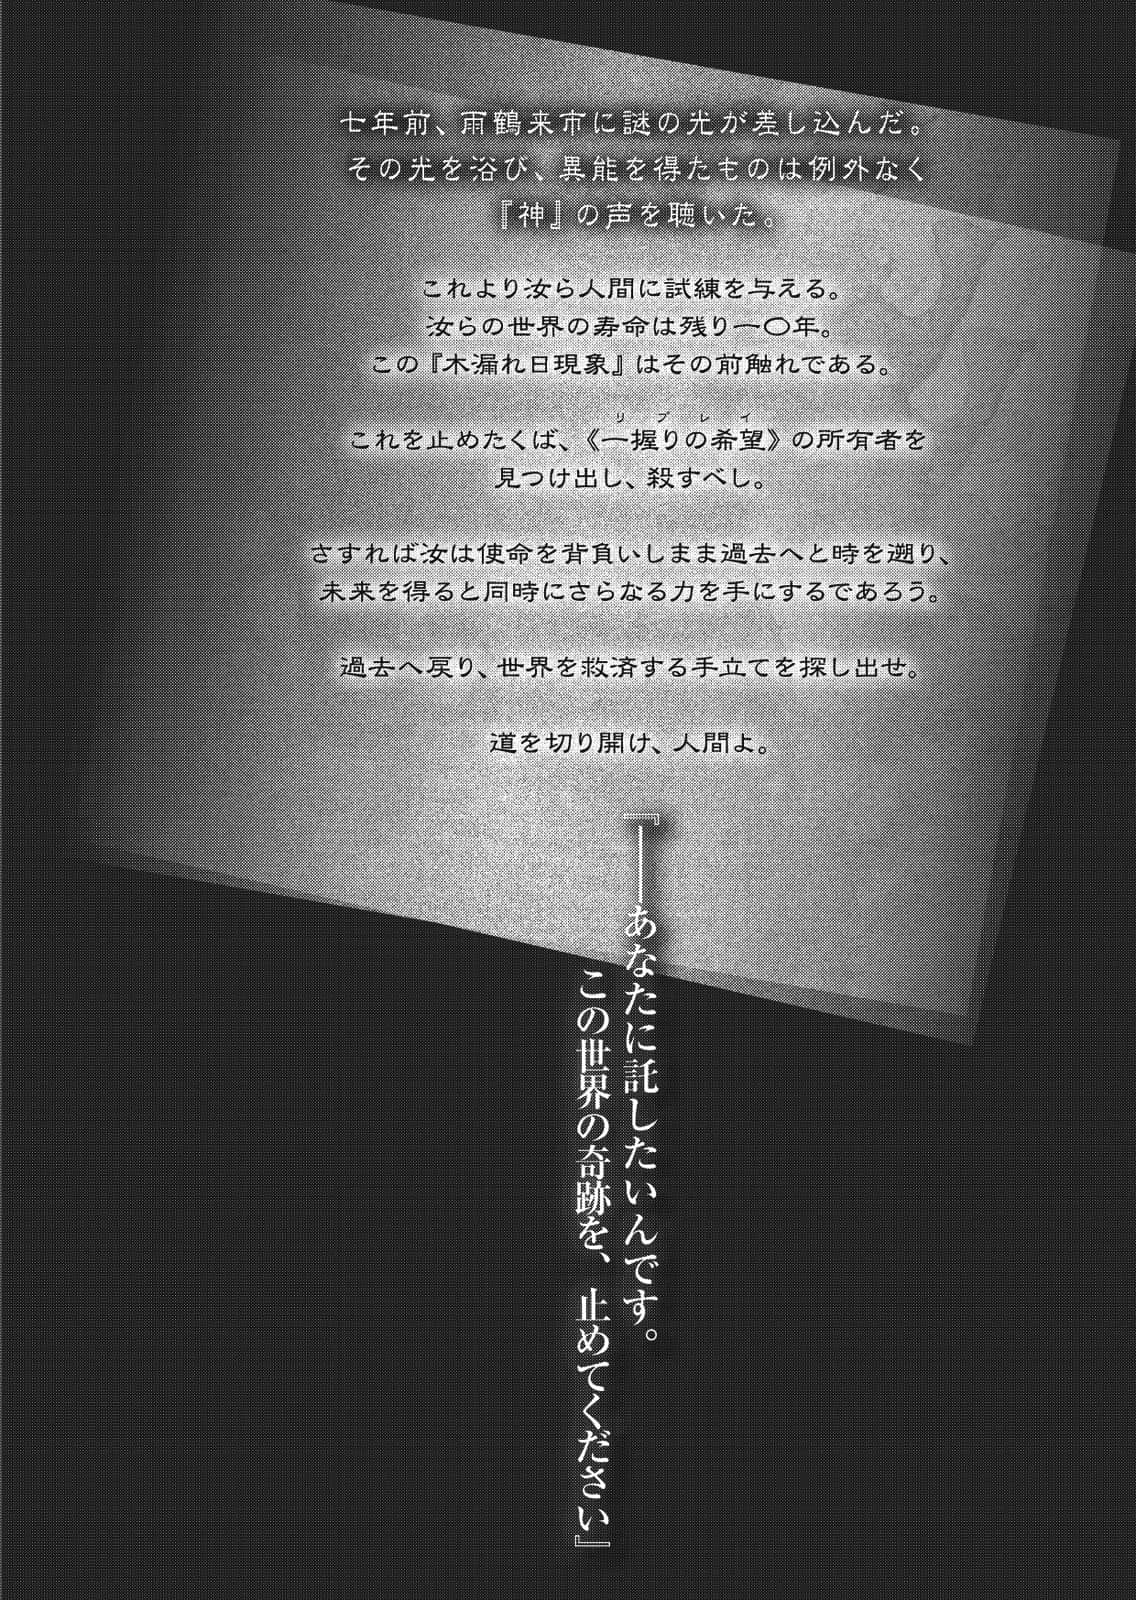 七年前、雨鶴来市に謎の光が差し込んだ。
その光を浴び、異能を得たものは例外なく
『神』の声を聴いた。
これより汝ら人間に試練を与える。
汝らの世界の寿命は残り一〇年。
この『木漏れ日現象』はその前触れである。
リプレイ
これを止めたくば、《一握りの希望》の所有者を
見つけ出し、殺すべし。
さすれば汝は使命を背負いしまま過去へと時を遡り、
未来を得ると同時にさらなる力を手にするであろう。
過去へ戻り、世界を救済する手立てを探し出せ。
道を切り開け、人間よ。
『――あなたに託したいんです。
この世界の奇跡を、止めてください』